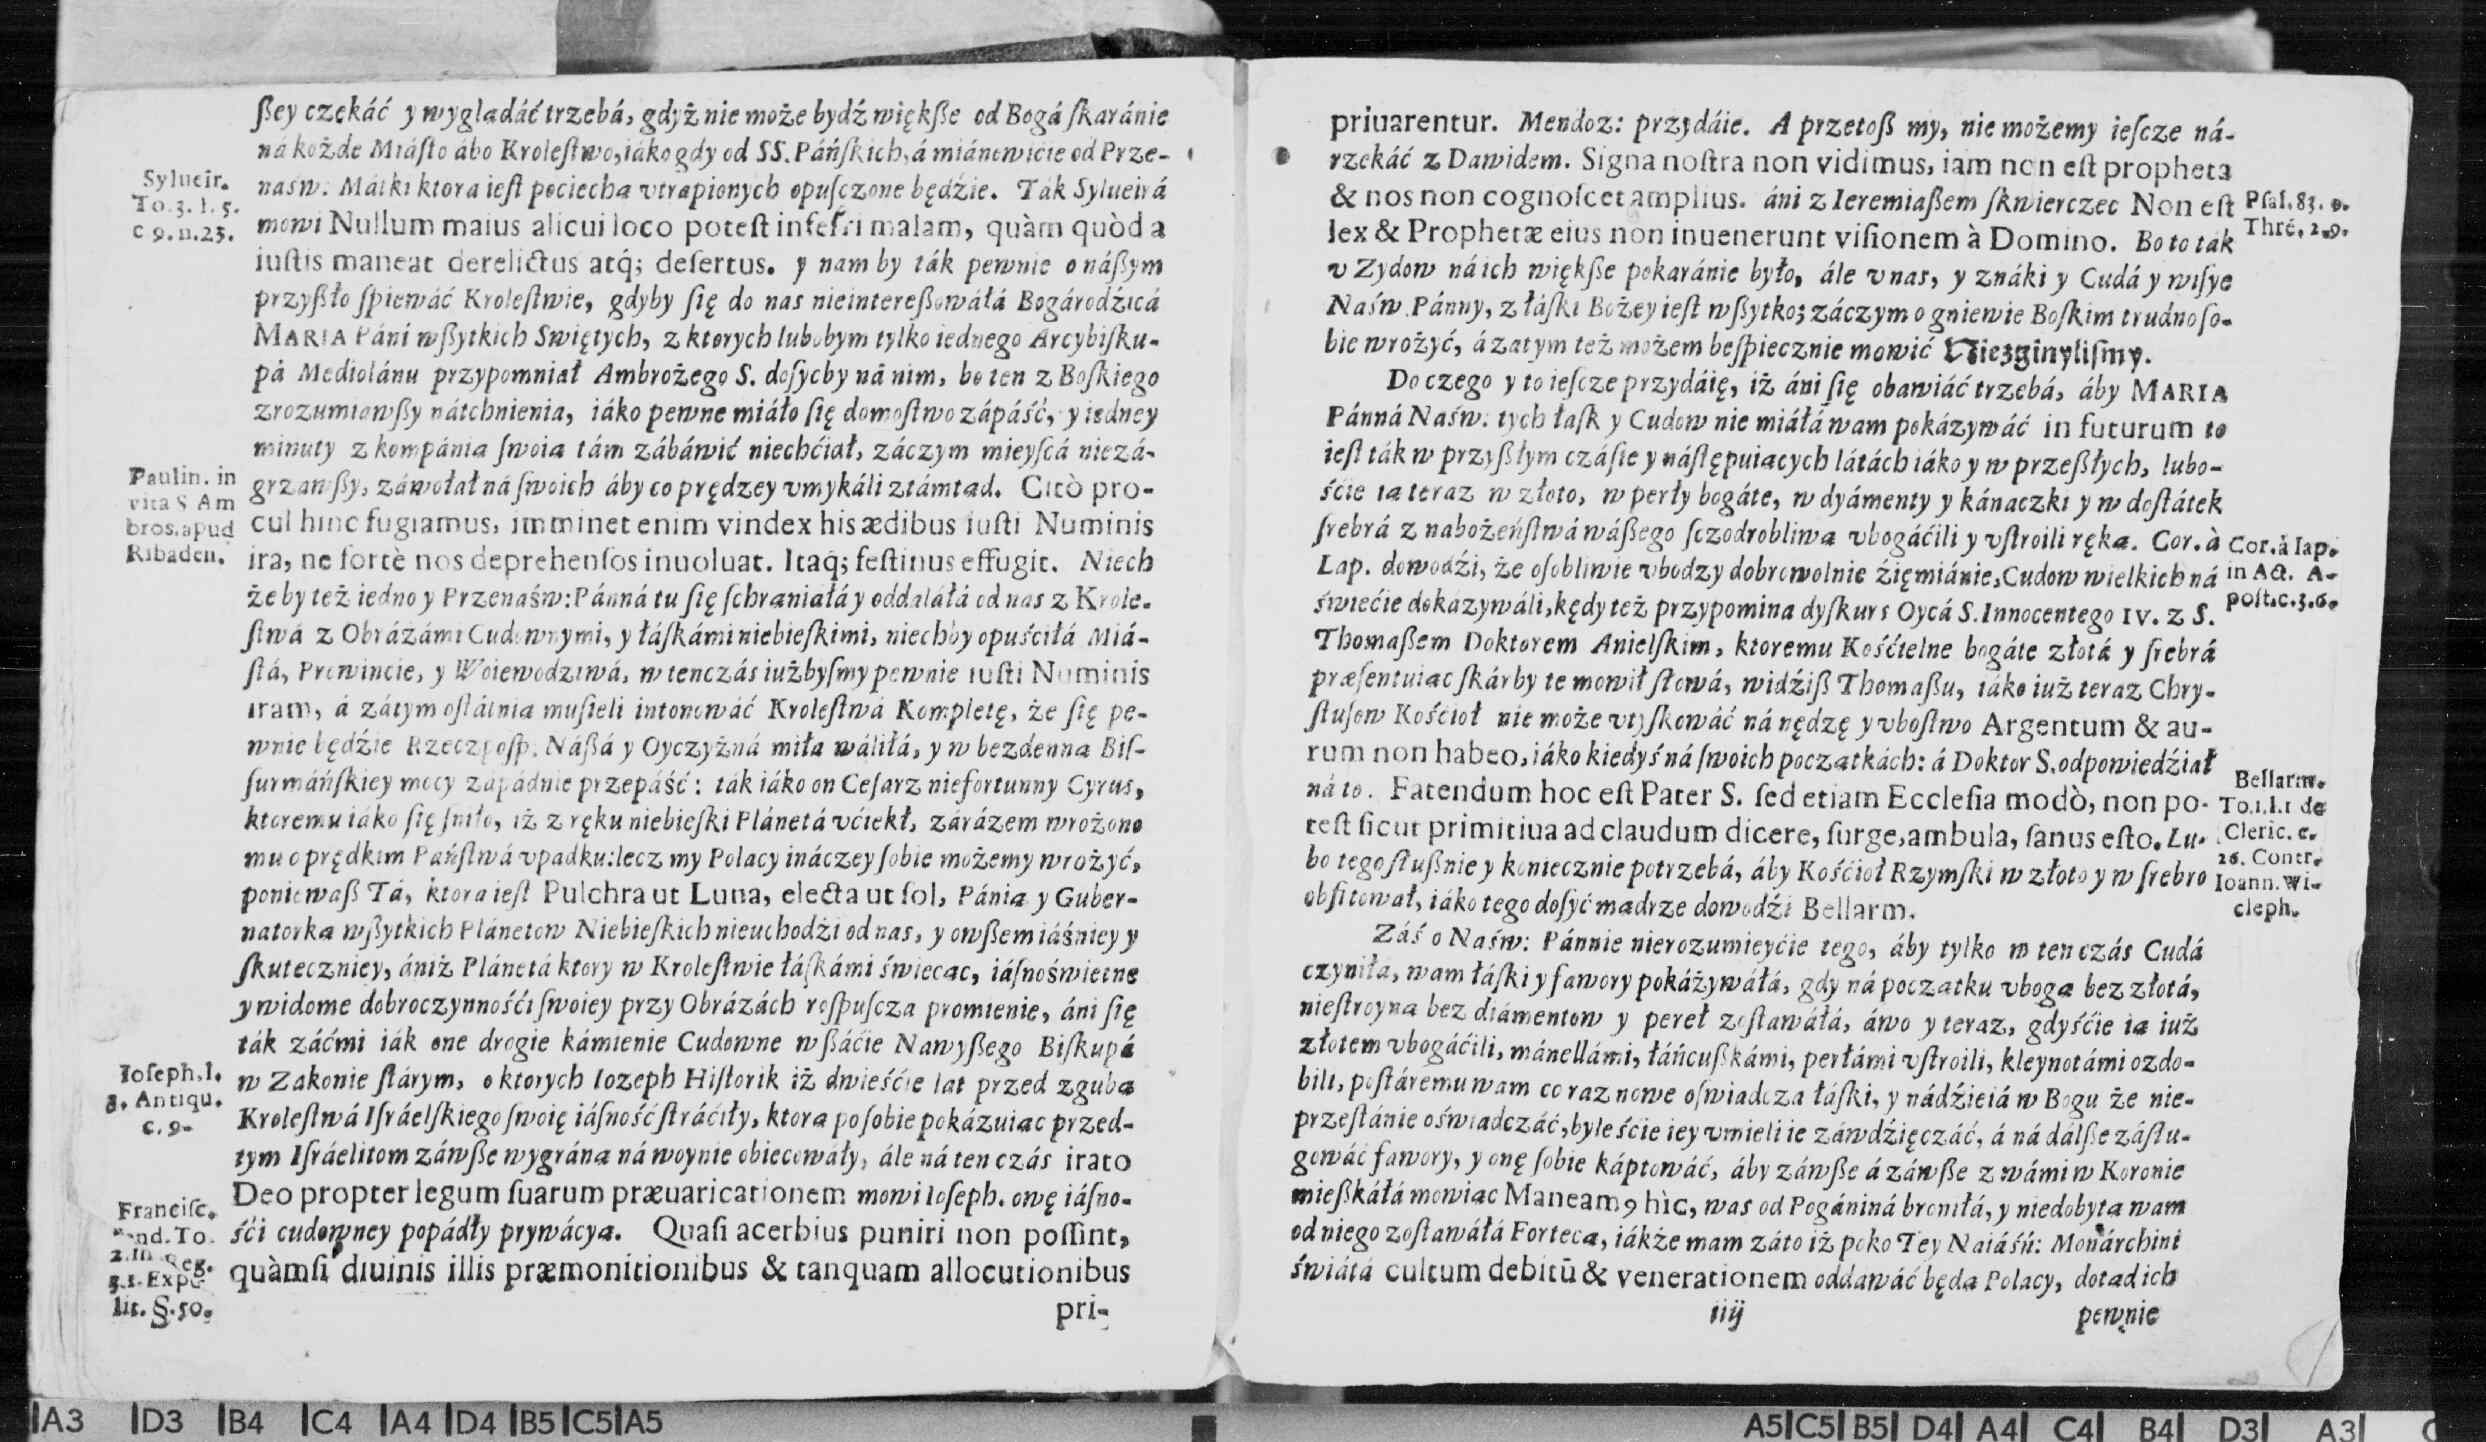 ßey czekáć y wyglądáć trzebá, gdyż nie może bydź więkße od Bogá ſkaránie
ná kożde Miáſto ábo Kroleſtwo, iáko gdy od SS. Páńſkich, á miánowićie od Prze-
naśw: Mátki ktora ieſt pociecha vtrapionych opuſczone będźie. Ták Sylueirá
mowi Nullum maius alicui loco poteſt inferri malam, quàm quòd a
iuſtis maneat derelictus atq́; deſertus. y nam by ták pewnie o náßym
przyßło ſpiewáć Kroleſtwie, gdyby ſię do nas nieintereßowáłá Bogárodźicá
MARIA Páni wßytkich Swiętych, z ktorych lubobym tylko iednego Arcybiſku-
pá Mediolánu przypomniał Ambrożego S. doſyćby ná nim, bo ten z Boſkiego
zrozumiawßy nátchnienia, iáko pewne miáło ſię domoſtwo zápáść, y iedney
minuty z kompánia ſwoia tám zábáwić niechćiał, záczym mieyſcá niezá-
grzawßy, záwołał ná ſwoich áby co prędzey vmykáli ztámtad. Citò pro-
cul hinc fugiamus, imminet enim vindex his ædibus iuſti Numinis
ira, ne fortè nos deprehenſos inuoluat. Itaq́; feſtinus effugit. Niech
że by też iedno y Przenaśw: Pánná tu ſię ſchraniałá y oddaláłá od nas z Krole-
ſtwá z Obrázámi Cudownymi, y łáſkámi niebieſkimi, niechby opuśćiłá Miá-
ſtá, Prowincie, y Woiewodztwá, w tenczás iużbyſmy pewnie iuſti Numinis
iram, á zátym oſtátnia muſieli intonowáć Kroleſtwá Kompletę, że ſię pe-
wnie będźie Rzeczpoſp. Náßá y Oyczyżná miła wáliłá, y w bezdenna Biſ-
ſurmáńſkiey mocy zápádnie przepáść: ták iáko on Ceſarz niefortunny Cyrus,
ktoremu iáko ſię ſniło, iż z ręku niebieſki Plánetá vćiekł, zárázem wrożono
mu o prędkim Páńſtwá vpadku: lecz my Polacy ináczey ſobie możemy wrożyć,
poniewaß Tá, ktora ieſt Pulchra ut Luna, electa ut ſol, Pánia y Guber-
natorka wßytkich Plánetow Niebieſkich nieuchodźi od nas, y owßem iáśniey y
ſkuteczniey, ániż Plánetá ktory w Kroleſtwie łáſkámi świecac, iáſnoświetne
y widome dobroczynnośći ſwoiey przy Obrázách roſpuſcza promienie, áni ſię
ták záćmi iák one drogie kámienie Cudowne w ßáćie Nawyßego Biſkupá
w Zakonie ſtárym, o ktorych Iozeph Hiſtorik iż dwieśćie lat przed zguba
Kroleſtwá Iſráelſkiego ſwoię iáſność ſtráćiły, ktora po ſobie pokázuiac przed-
tym Iſráelitom záwße wygrána ná woynie obiecowáły, ále ná ten czás irato
Deo propter legum ſuarum præuaricationem mowi Ioſeph. owę iáſno-
śći cudowney popádły prywácya. Quaſi acerbius puniri non poſſint,
quàm ſi diuinis illis præmonitionibus & tanquam allocutionibus
pri-
Sylueir.
To. 3. l. 5.
c 9. n. 23.
Paulin. in
vita S Am
bros. apud
Ribaden.
Ioſeph. l.
3. Antiqu.
c. 9.
Franciſc.
nd. To.
2. in eg.
lit. §. 50.
priuarentur. Mendoz: przydáie. A przetoß my, nie możemy ieſcze ná-
rzekáć z Dawidem. Signa noſtra non vidimus, iam non eſt propheta
& nos non cognoſcet amplius. áni z Ieremiaßem ſkwierczec Non eſt
lex & Prophetæ eius non inuenerunt viſionem à Domino. Bo to ták
v Zydow ná ich więkße pokaránie było, ále v nas, y znáki y Cudá y wiſye
Naśw. Pánny, z łáſki Bożey ieſt wßytko; záczym o gniewie Boſkim trudno ſo-
bie wrożyć, á zatym też możem beſpiecznie mowić Niezginyliſmy.
Do czego y to ieſcze przydáię, iż áni ſię obawiáć trzebá, áby MARIA
Pánná Naśw: tych łaſk y Cudow nie miáłá wam pokázywáć in futurum to
ieſt ták w przyßłym czáſie y náſtępuiacych látách iáko y w przeßłych, lubo-
śćie ia teraz w złoto, w perły bogáte, w dyámenty y kánaczki y w doſtátek
ſrebrá z nabożeńſtwá wáßego ſczodrobliwa vbogáćili y vſtroili ręka. Cor. à
Lap. dowodźi, że oſobliwie vbodzy dobrowolnie źięmiánie, Cudow wielkich ná
świećie dokázywáli, kędy też przypomina dyſkurs Oycá S. Innocentego IV. z S.
Thomaßem Doktorem Anielſkim, ktoremu Kośćielne bogáte złotá y ſrebrá
præſentuiac ſkárby te mowił ſłowá, widźiß Thomaßu, iáko iuż teraz Chry-
ſtuſow Kośćioł nie może vtyſkowáć ná nędzę y vboſtwo Argentum & au-
rum non habeo, iáko kiedyś ná ſwoich poczatkách: á Doktor S. odpowiedźiał
ná to. Fatendum hoc eſt Pater S. ſed etiam Ecclesia modò, non po-
teſt ſicut primitiua ad claudum dicere, ſurge, ambula, ſanus eſto. Lu-
bo tego ſłußnie y koniecznie potrzebá, áby Kośćioł Rzymſki w złoto y w ſrebro
obfitował, iáko tego doſyć madrze dowodźi Bellarm.
Záś o Naśw: Pánnie nierozumieyćie tego, áby tylko w ten czás Cudá
czyniła, wam łáſki y fawory pokáżywáłá, gdy ná poczatku vboga bez złotá,
nieſtroyna bez diámentow y pereł zoſtawáłá, áwo y teraz, gdyśćie ia iuż
złotem vbogáćili, mánellámi, łáńcußkámi, perłámi vſtroili, kleynotámi ozdo-
bili, poſtáremu wam co raz nowe oſwiadcza łáſki, y nádźieiá w Bogu że nie-
przeſtánie oświadczáć, byleśćie iey vmieli ie záwdźięczáć, á ná dálße záſłu-
gowáć fawory, y onę ſobie káptowáć, áby záwße á záwße z wámi w Koronie
mießkáłá mowiac Maneamꝰ hìc, was od Pogániná broniłá, y niedobyta wam
od niego zoſtawáłá Forteca, iákże mam záto iż poko Tey Naiáśń: Monárchini
świátá cultum debitū & venerationem oddawáć będa Polacy, dotad ich
iiij
pewnie
Pſal. 83. 9.
Thre. 2. 9.
Cor. à lap.
in Act. A-
poſt. c. 3. 6.
Bellarm.
To. 1. l. 1 de
Cleric. c.
26. Contr.
Ioann. Wi-
cleph.
A3 D3 B4 C4 A4 D4 B5 C5 A5
A5 C5 B5 D4 A4 C4 B4 D3 A3